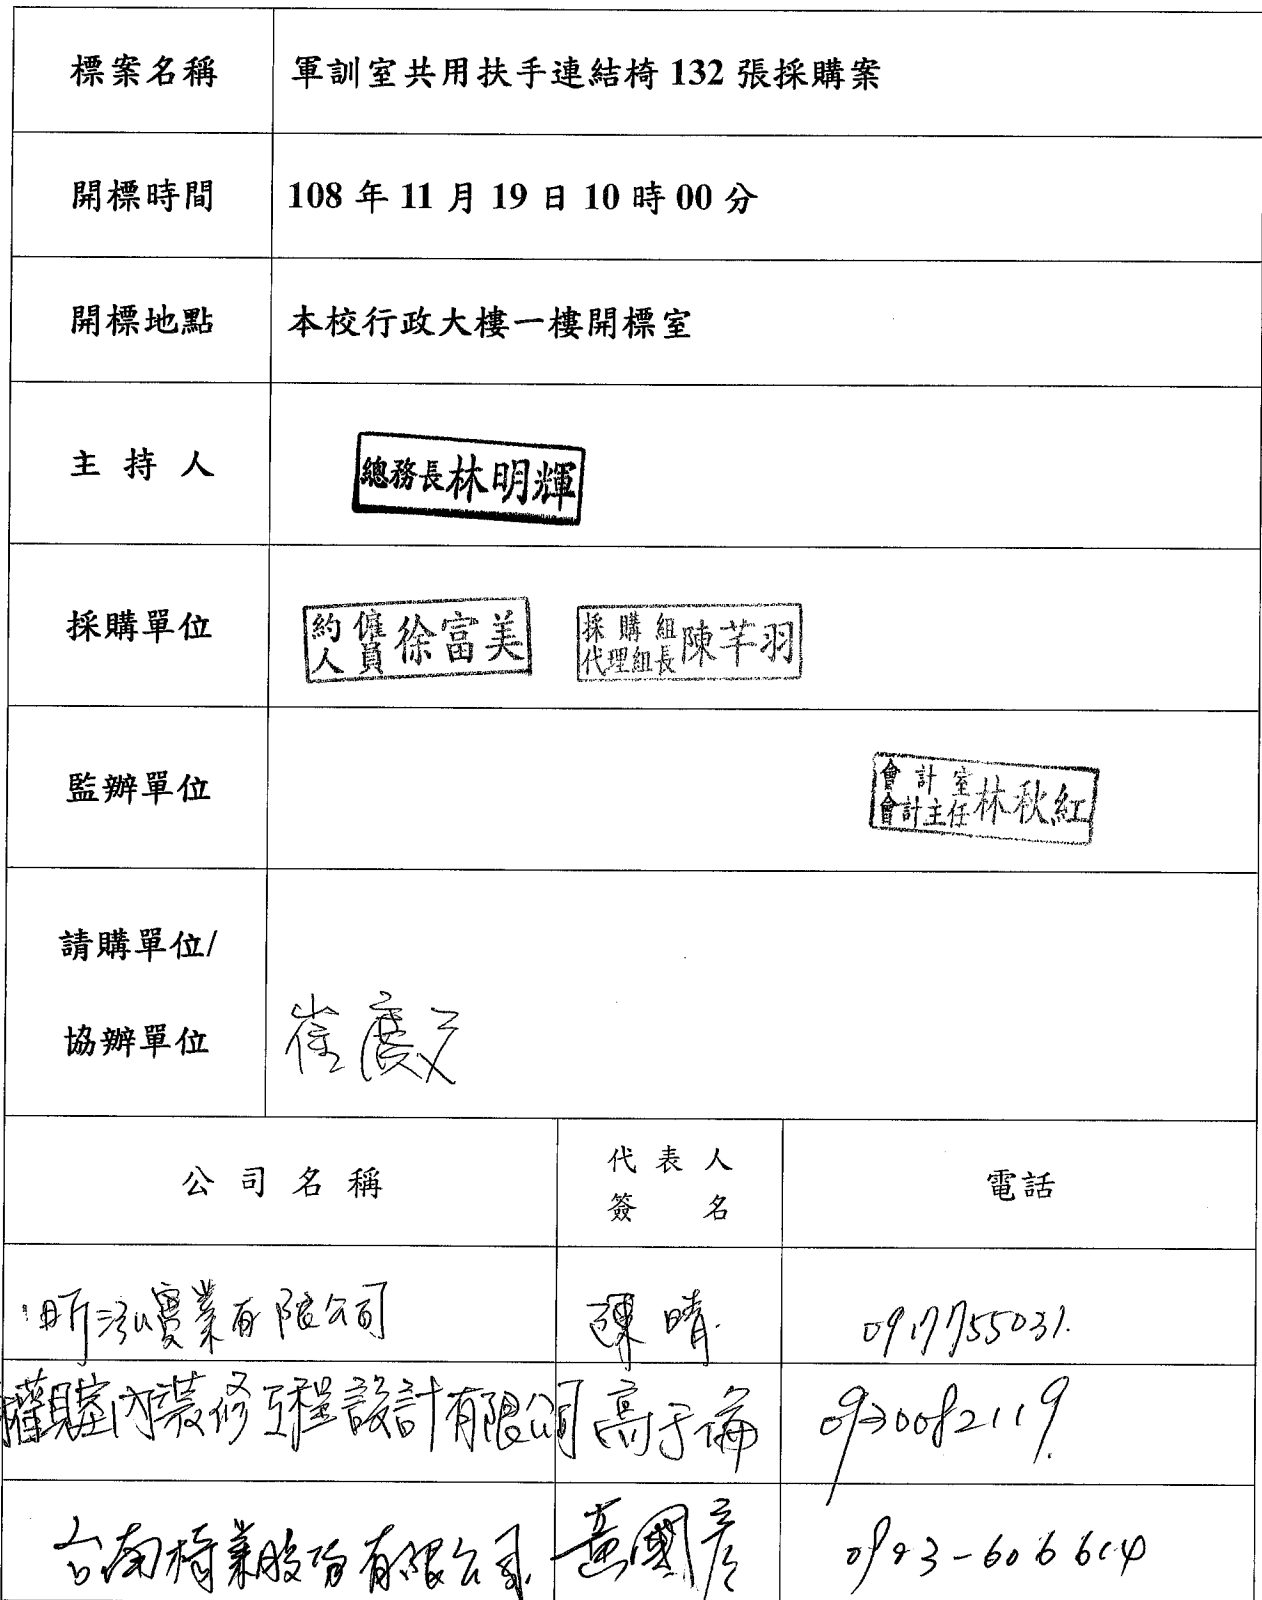 標案名稱 軍訓室共用扶手連結椅 132 張採購案
開標時間 108 年 11 月 19 日 10 時 00 分
開標地點 本校行政大樓一樓開標室
主 持 人 總務長林明輝
採購單位 約僱人員徐富美 採購組代理組長陳芊羽
監辦單位 會計室會計主任林秋紅
請購單位/
協辦單位 崔慶文
公 司 名 稱 代表人簽名 電話
昕泓實業有限公司 陳晴 0917755031.
室內裝修工程設計有限公司 高于倫 0930082119.
台南椅業股份有限公司 黃國彥